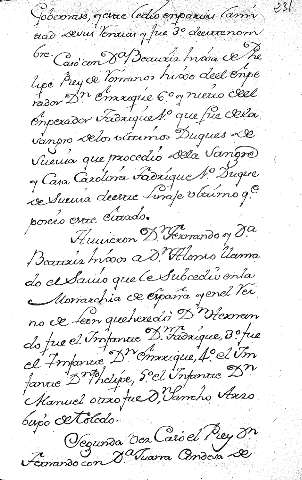 231
Gobernaɔ, y este le dio en parias la mi
tad de sus Rentas, y fue 3º de este nom
bre. Casó con Dª Beatriz hixa de Phe
lipe Rey de Romanos hixo de el Empe
rador Dn Enrrique 6º y nieto de el
Emperador Fadrique 4º que fue de la
sangre de los ultimos Duques de
Suevia que procedio de la Sangre
y Casa Carolina Fadrique Nº Duque
de Suevia de este Linaje ultimo qe
poseio este Estado.
Huvieron Dn Fernando y Dª
Beatriz hixos a Dn Alonso llama
do el Savio que le Subcedio en la
Monarchia de España y en el Rei
no de Leon que heredó Dn Hernan
do fue el Infante Dn Fadrique, 3º fue
el Infante Dn Enrrique, 4º el In
fante Dn Phelipe, 5º el Infante Dn
Manuel otro fue Dn Sancho Arzo
bispo de Toledo.
Segunda vez Casó el Rey Dn
Fernando con Dª Juana Condesa de